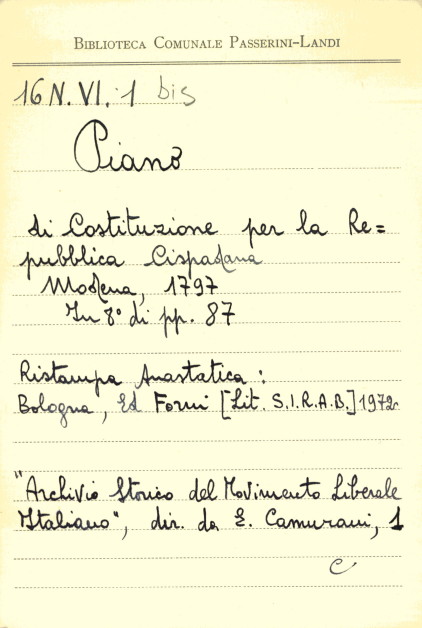 BIBLIOTECA COMUNALE PASSERINI-LANDI
16 N. VI. 1 bis
Piano
di Costituzione per la Re=
pubblica Cispadana
Modena, 1797
In 8° di pp. 87
Ristampa Anastatica:
Bologna, Ed Forni [Lit. S.I.R.A.B.] 1972
"Archivio Storico del Movimento Liberale
Italiano", dir. da E. Camurani, 1
C